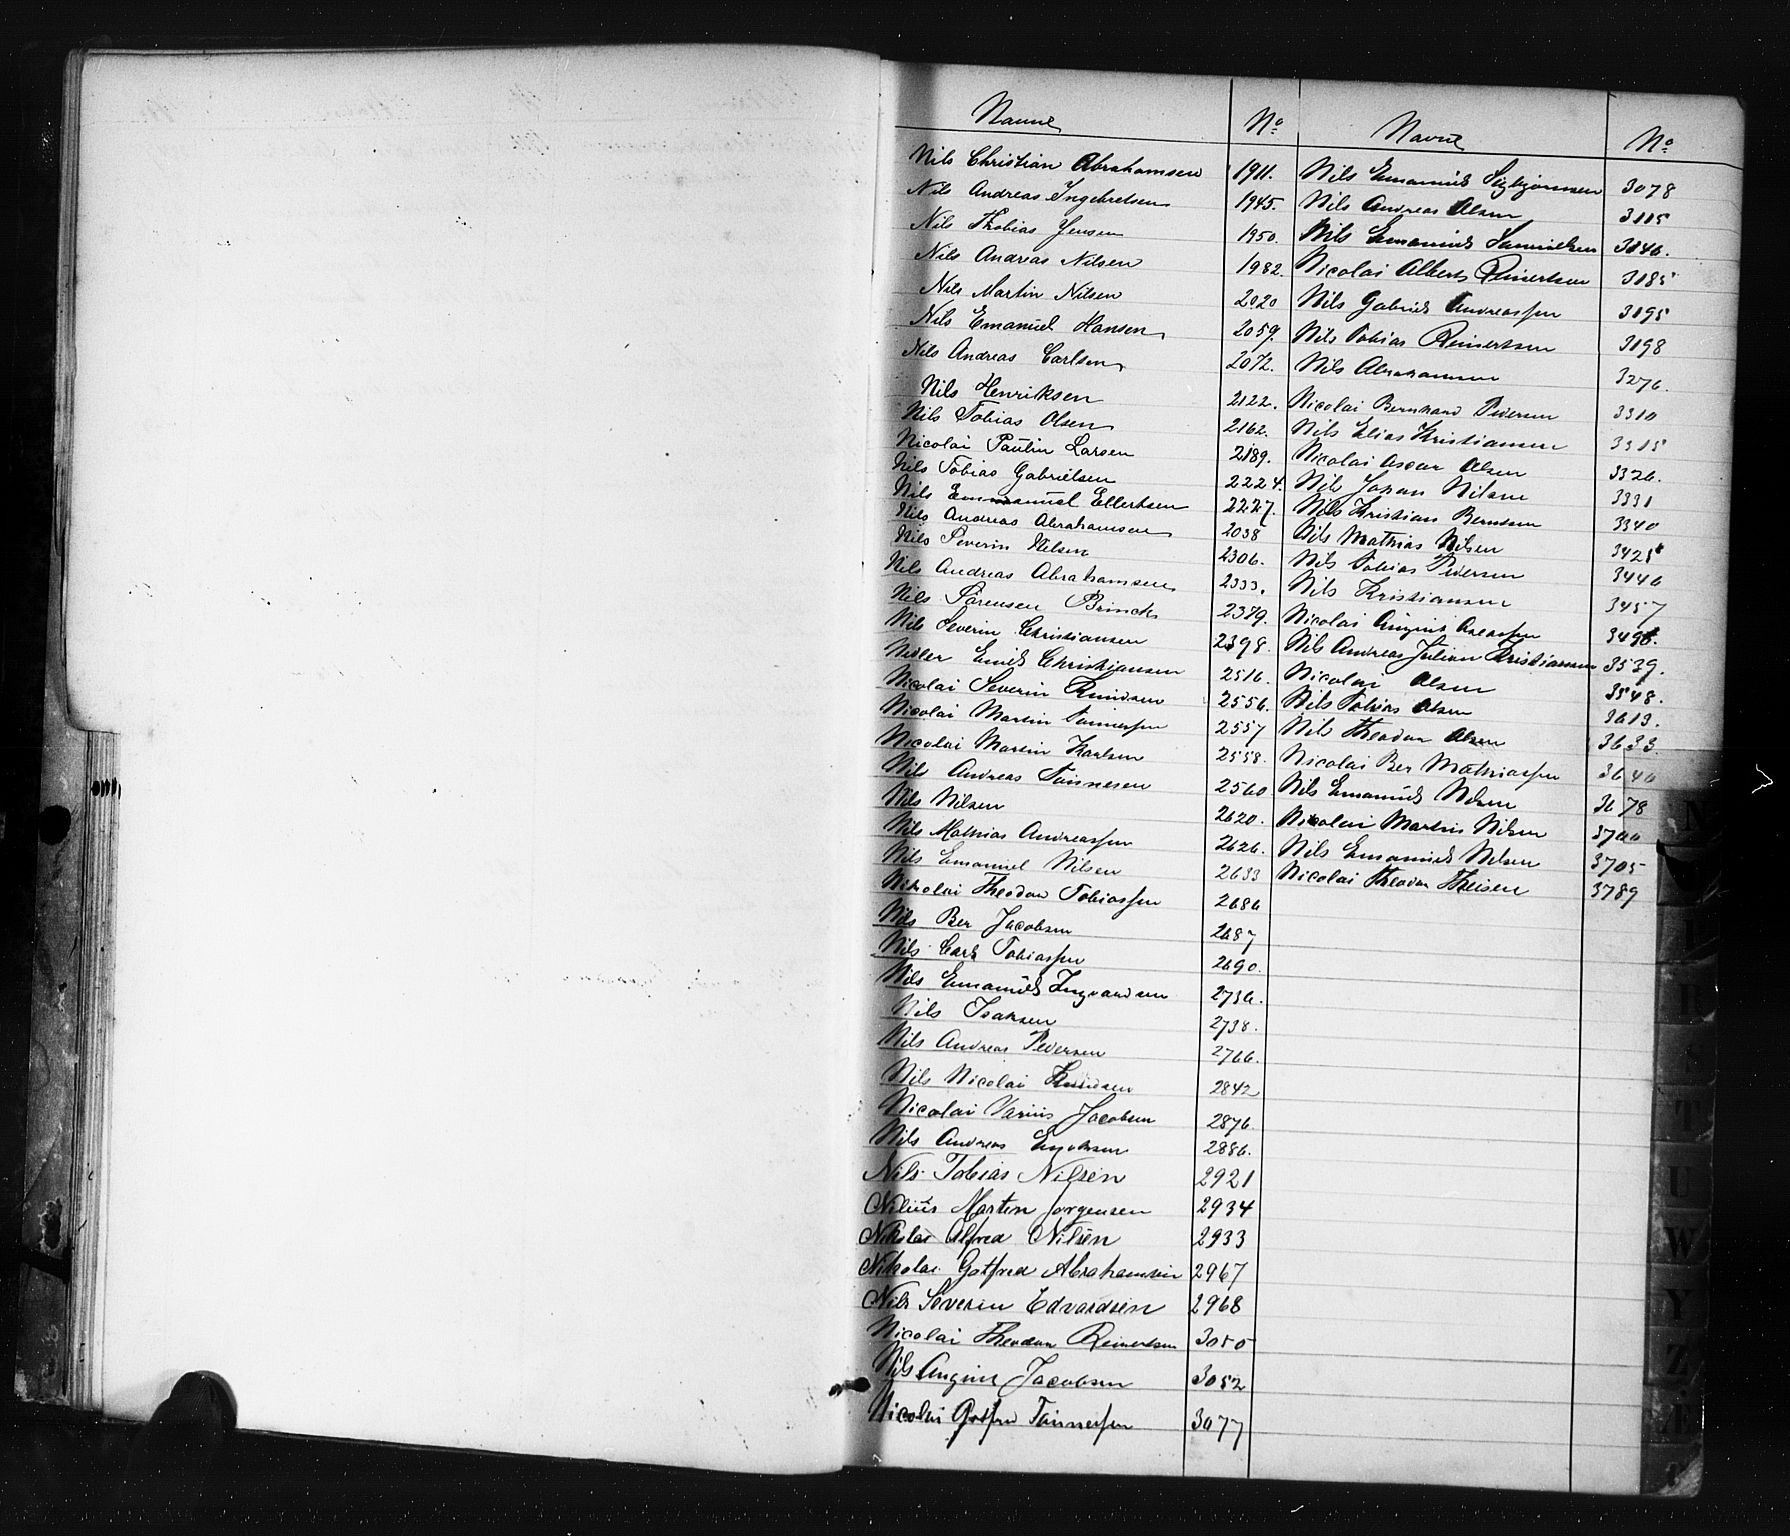 Navne No
Nils Christian Abrahamsen 1911.
Nils Andreas Ingebretsen 1945.
Nils Thobias Jensen 1950.
Nils Andreas Nilsen 1982
Nils Martin Nilsen 2020
Nils Emanuel Hansen 2059.
Nils Andreas Carlsen 2072.
Nils Henriksen 2122.
Nils Tobias Olsen 2162.
Nicolai Paulin Larsen 2189.
Nils Tobias Gabrielsen 2224.
Nils Emmanuel Ellertsen 2227.
Nils Andreas Abrahamsen 2038
Nils Severin Nilsen 2306.
Nils Andreas Abrahamsen 2333.
Nils Sørensen Brinch 2379.
Nils Severin Christiansen 2398.
Emil Christiansen 2516.
Nicolai Severin Knudsen 2556.
Nicolai Martin Tønnessen 2557
Nicolai Martin Karlsen 2558.
Nils Andreas Tønnesen 2560
Nils Nilsen 2620.
Nils Mathias Andreassen 2626.
Nils Emanuel Nilsen 2633
Nikolai Theodor Tobiassen 2686
Nils Ber Jacobsen 2687
Nils Carl Tobiassen 2690.
Nils Emanuel Ingvardsen 2736.
Nils Isaksen 2738.
Nils Andreas Pedersen 2766.
Nils Nicolai Knudsen 2842
Nicolai Jacobsen 2876.
Nils Andreas 2886.
Nils Tobias Nilsen 2921
Nilius Martin Jørgensen 2934
Nikolai Alfred Nilsen 2933
Nikolai Gotfred Abrahamsen 2967
Nils Severin Edvardsen 2968
Nicolai Theodor Reinertsen 3050
Nils August Jacobsen 3052
Nicolai Gotfred Tønnessen 3077
Navne No
Nils Emanuel Sigbjørnsen 3078
Nils Andreas Olsen 3115
Nils Emanuel Samuelsen 3146.
Nicolai Albert Reinertsen 3185
Nils Gabriel Andreassen 3195
Nils Tobias Reinertsen 3198
Nils Abrahamsen 3276.
Nicolai Bernhard Pedersen 3310
Nils Elias Kristiansen 3315
Nicolai Oscar Olsen 3326.
Nils Johan Nilsen 3331
Nils Kristian Berntsen 3340
Nils Mathias Nilsen 3425
Nils Tobias Pedersen 3446
Nils Kristiansen 3457
Nicolai August
Nils Andreas Julian Kristiansen 3539.
Nicolai Olsen 3548.
Nils Tobias Olsen 3613.
Nils Theodor Olsen 3633
Nicolai Ber Mathiassen 3640
Nils Emanuel Nilsen 3678
Nicolai Martin Nilsen 3700
Nils Emanuel Nilsen 3705
Nicolai Theodor Theisen 3789
N
R
S
T
U
W
Y
Z
Æ